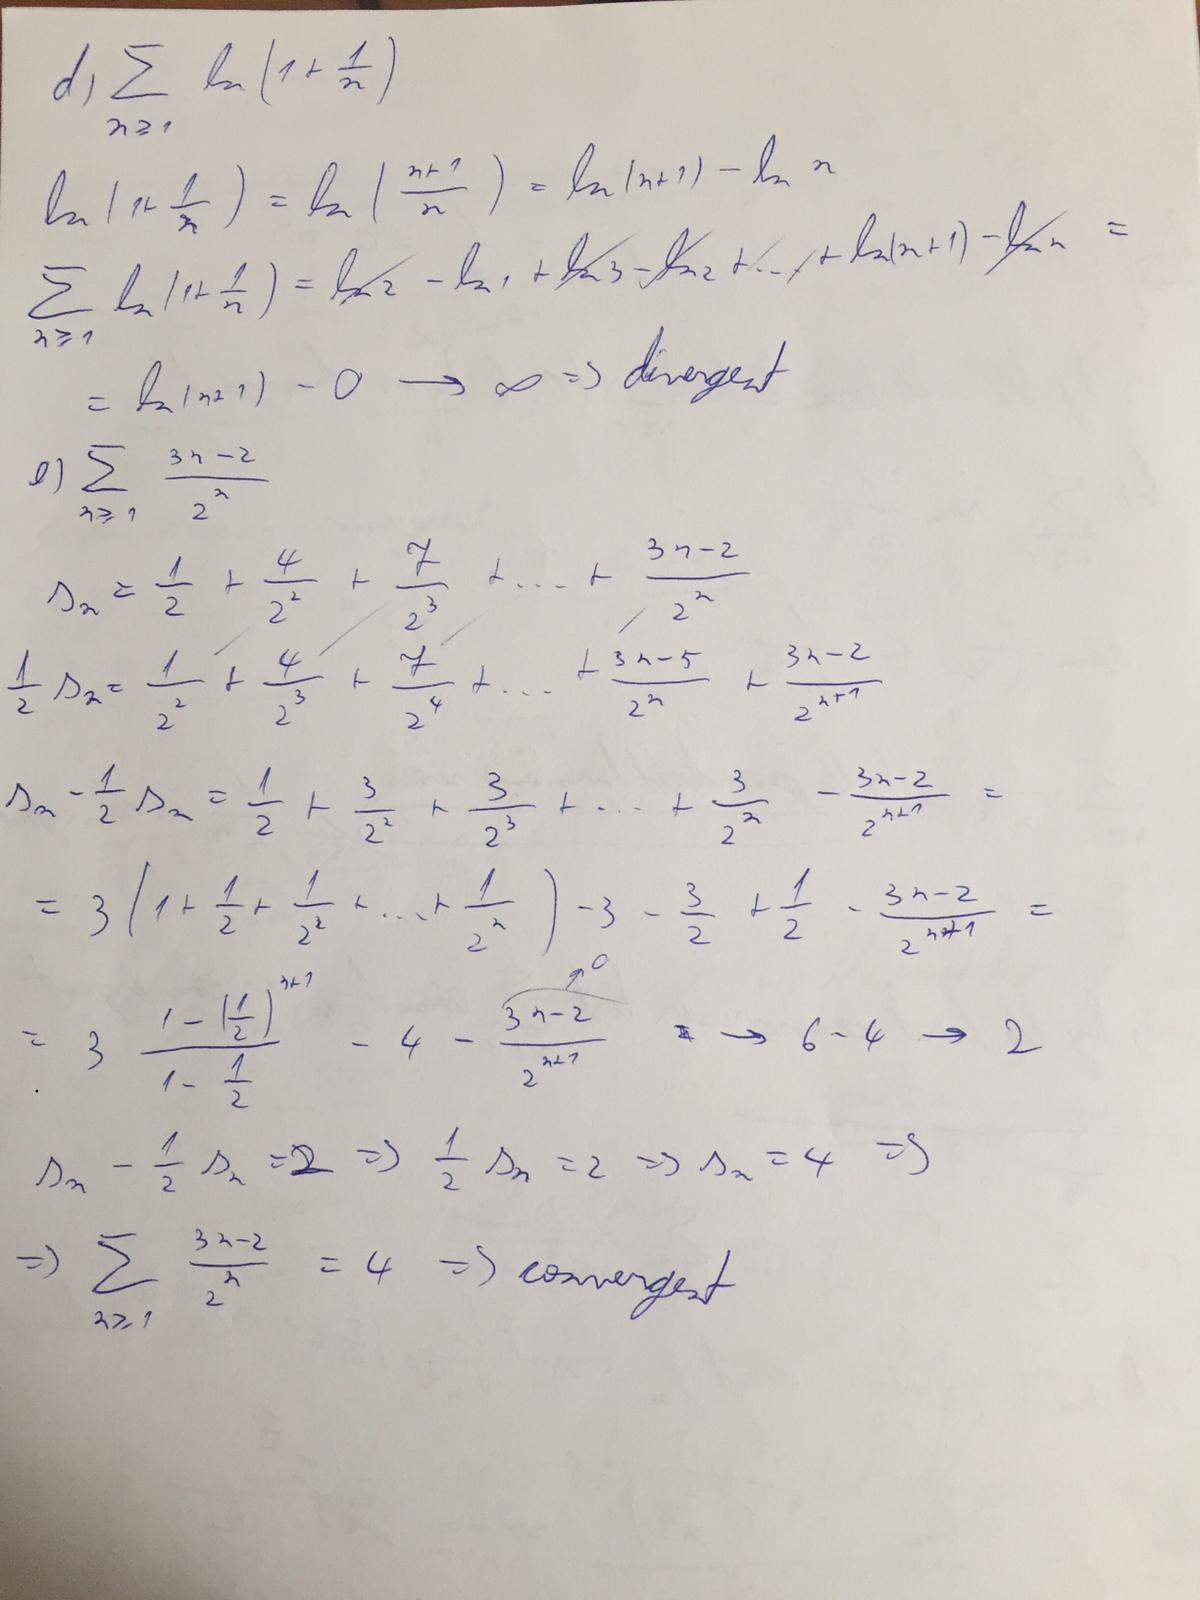 d) ∑_{n≥1} ln(1+1/n)
ln(1+1/n) = ln((n+1)/n) = ln(n+1) - ln n
∑_{n≥1} ln(1+1/n) = ln 2 - ln 1 + ln 3 - ln 2 + ... + ln(n+1) - ln n =
= ln(n+1) - 0 → ∞ => divergent
e) ∑_{n≥1} (3n-2)/2^n
s_n = 1/2 + 4/2^2 + 7/2^3 + ... + (3n-2)/2^n
1/2 s_n = 1/2^2 + 4/2^3 + 7/2^4 + ... + (3n-5)/2^n + (3n-2)/2^{n+1}
s_n - 1/2 s_n = 1/2 + 3/2^2 + 3/2^3 + ... + 3/2^n - (3n-2)/2^{n+1} =
= 3(1 + 1/2 + 1/2^2 + ... + 1/2^n) - 3 - 3/2 + 1/2 - (3n-2)/2^{n+1} =
= 3 (1-(1/2)^{n+1})/(1-1/2) - 4 - (3n-2)/2^{n+1} ↗0 → 6-4 → 2
s_n - 1/2 s_n = 2 => 1/2 s_n = 2 => s_n = 4 =>
=> ∑_{n≥1} (3n-2)/2^n = 4 => convergent